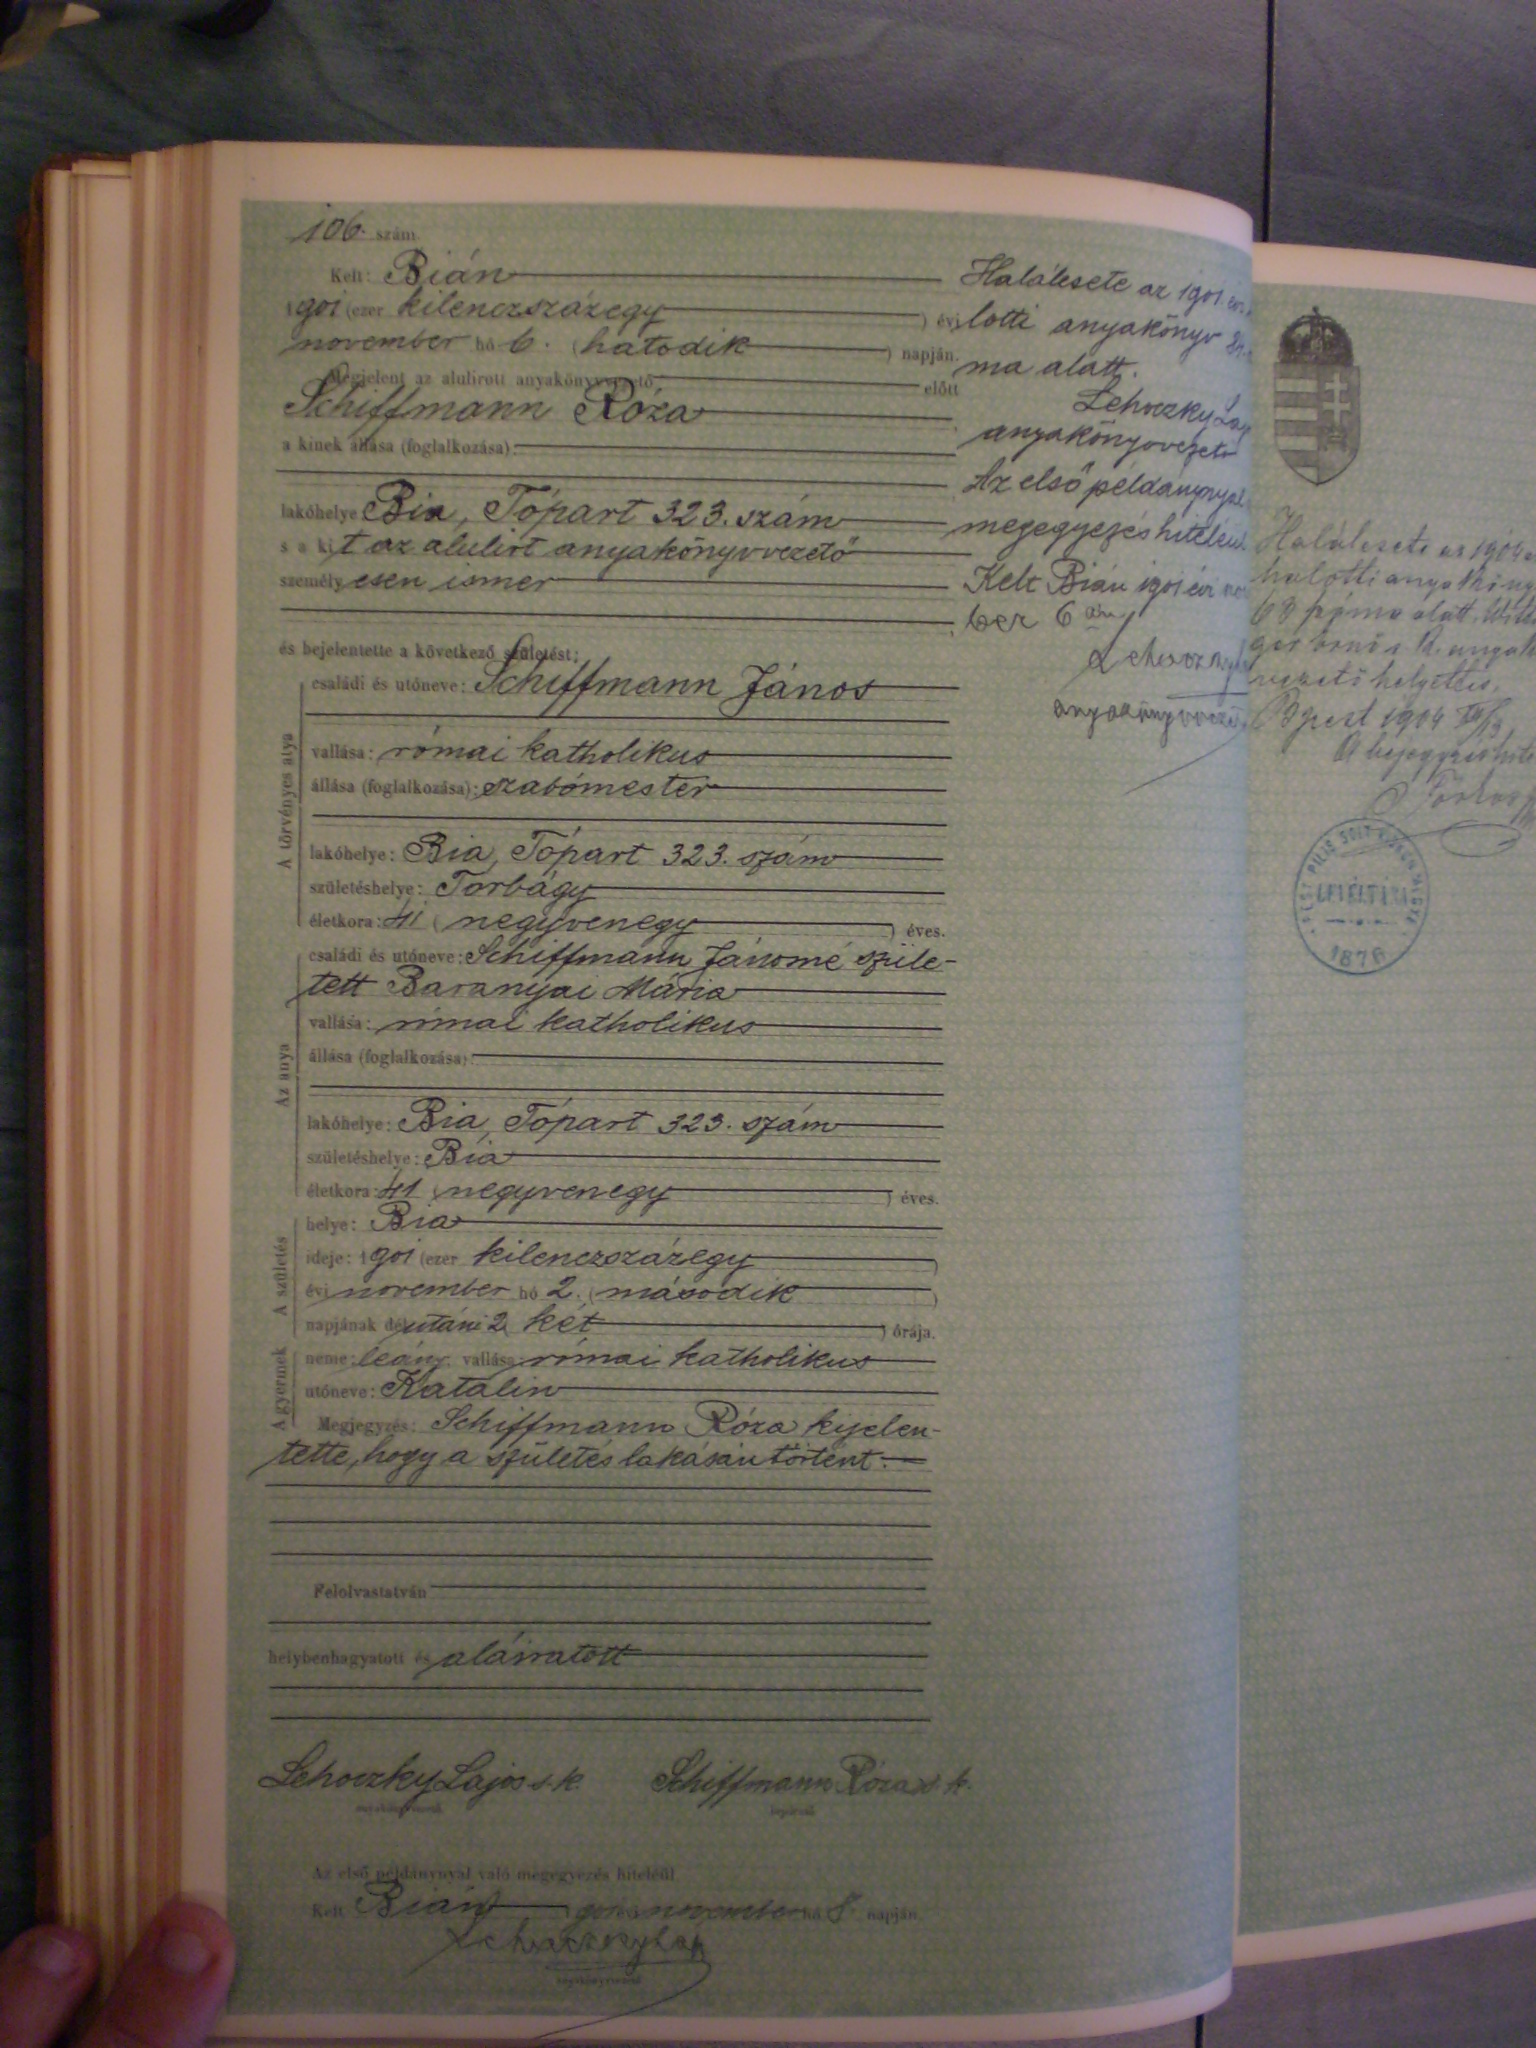 106. szám
Kelt: Bián
1901 (ezer kilenczszázegy ) évi
november hó 6. (hatodik ) napján.
Megjelent az alulirott anyakönyvvezető előtt
Schiffmann Róza
a kinek állása (foglalkozása):
lakóhelye Bia, Tópart 323. szám
s a kit az alulirt anyakönyvvezető
személyesen ismer
és bejelentette a következő születést:
A törvényes atya
családi és utóneve: Schiffmann János
vallása: római katholikus
állása (foglalkozása): szabómester
lakóhelye: Bia, Tópart 323. szám
születéshelye: Torbágy
életkora: 41 (negyvenegy ) éves.
Az anya
családi és utóneve: Schiffmann Jánosné szüle-
tett Baranyai Mária
vallása: római katholikus
állása (foglalkozása):
lakóhelye: Bia, Tópart 323. szám
születéshelye: Bia
életkora: 41 (negyvenegy ) éves.
A születés
helye: Bia
ideje: 1901 (ezer kilenczszázegy )
évi november hó 2. (második )
napjának délutáni 2 két ) órája.
A gyermek
neme: leány, vallása: római katholikus
utóneve: Katalin
Megjegyzés: Schiffmann Róza kijelen-
tette, hogy a születés lakásán történt.
Felolvastatván
helybenhagyatott és aláiratott
Lehoczky Lajos s. k. Schiffmann Róza s. k.
anyakönyvvezető bejelentő
Az első példánynyal való megegyezés hiteléül
Kelt Bián 1901 évi november hó 8. napján.
anyakönyvvezető
Halálesete az 1901. évi
lotti anyakönyv
ma alatt.
Lehoczky Laj
anyakönyvvezető
Az első példánynyal
megegyezés hiteléül
Kelt Bián 1901 évi no
ber 6 án
anyakönyvvezető
Halálesete az 1904
halotti anyaköny
63 száma alatt.
vezető helyettes.
Bpest 1904
A bejegyzés hite
PEST PILIS SOLT KISKUN MEGYE
LEVÉLTÁRA
1876